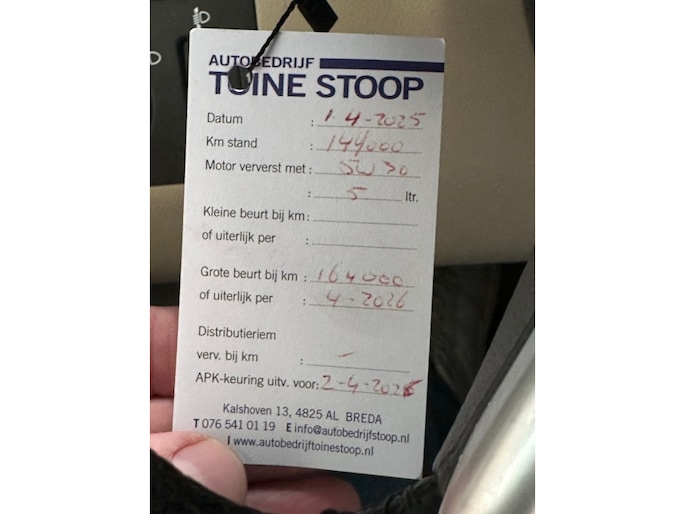 AUTOBEDRIJF
TOINE STOOP
Datum : 1-4-2025
Km stand : 144000
Motor ververst met : 5W30
: 5 ltr.
Kleine beurt bij km :
of uiterlijk per :
Grote beurt bij km : 164000
of uiterlijk per : 4-2026
Distributieriem
verv. bij km : -
APK-keuring uitv. voor: 2-4-2026
Kalshoven 13, 4825 AL BREDA
T 076 541 01 19 E info@autobedrijfstoop.nl
I www.autobedrijftoinestoop.nl